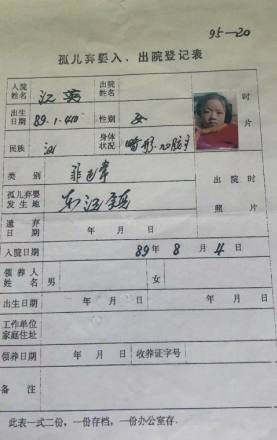 95—20
孤儿弃婴入、出院登记表
入院姓名 江英 出院姓名
出生日期 89.1.4 性别 女
民族 汉 身体状况 畸形
时 片
类别
出院时
孤儿弃婴发生地 东江
照片
遗弃日期 年 月 日
入院日期 89年8月4日
领养人姓名 男 女
出生日期 年 月 日 年 月 日
工作单位家庭住址
领养日期 年 月 日 收养证字号
备注
此表一式二份，一份存档，一份办公室存。